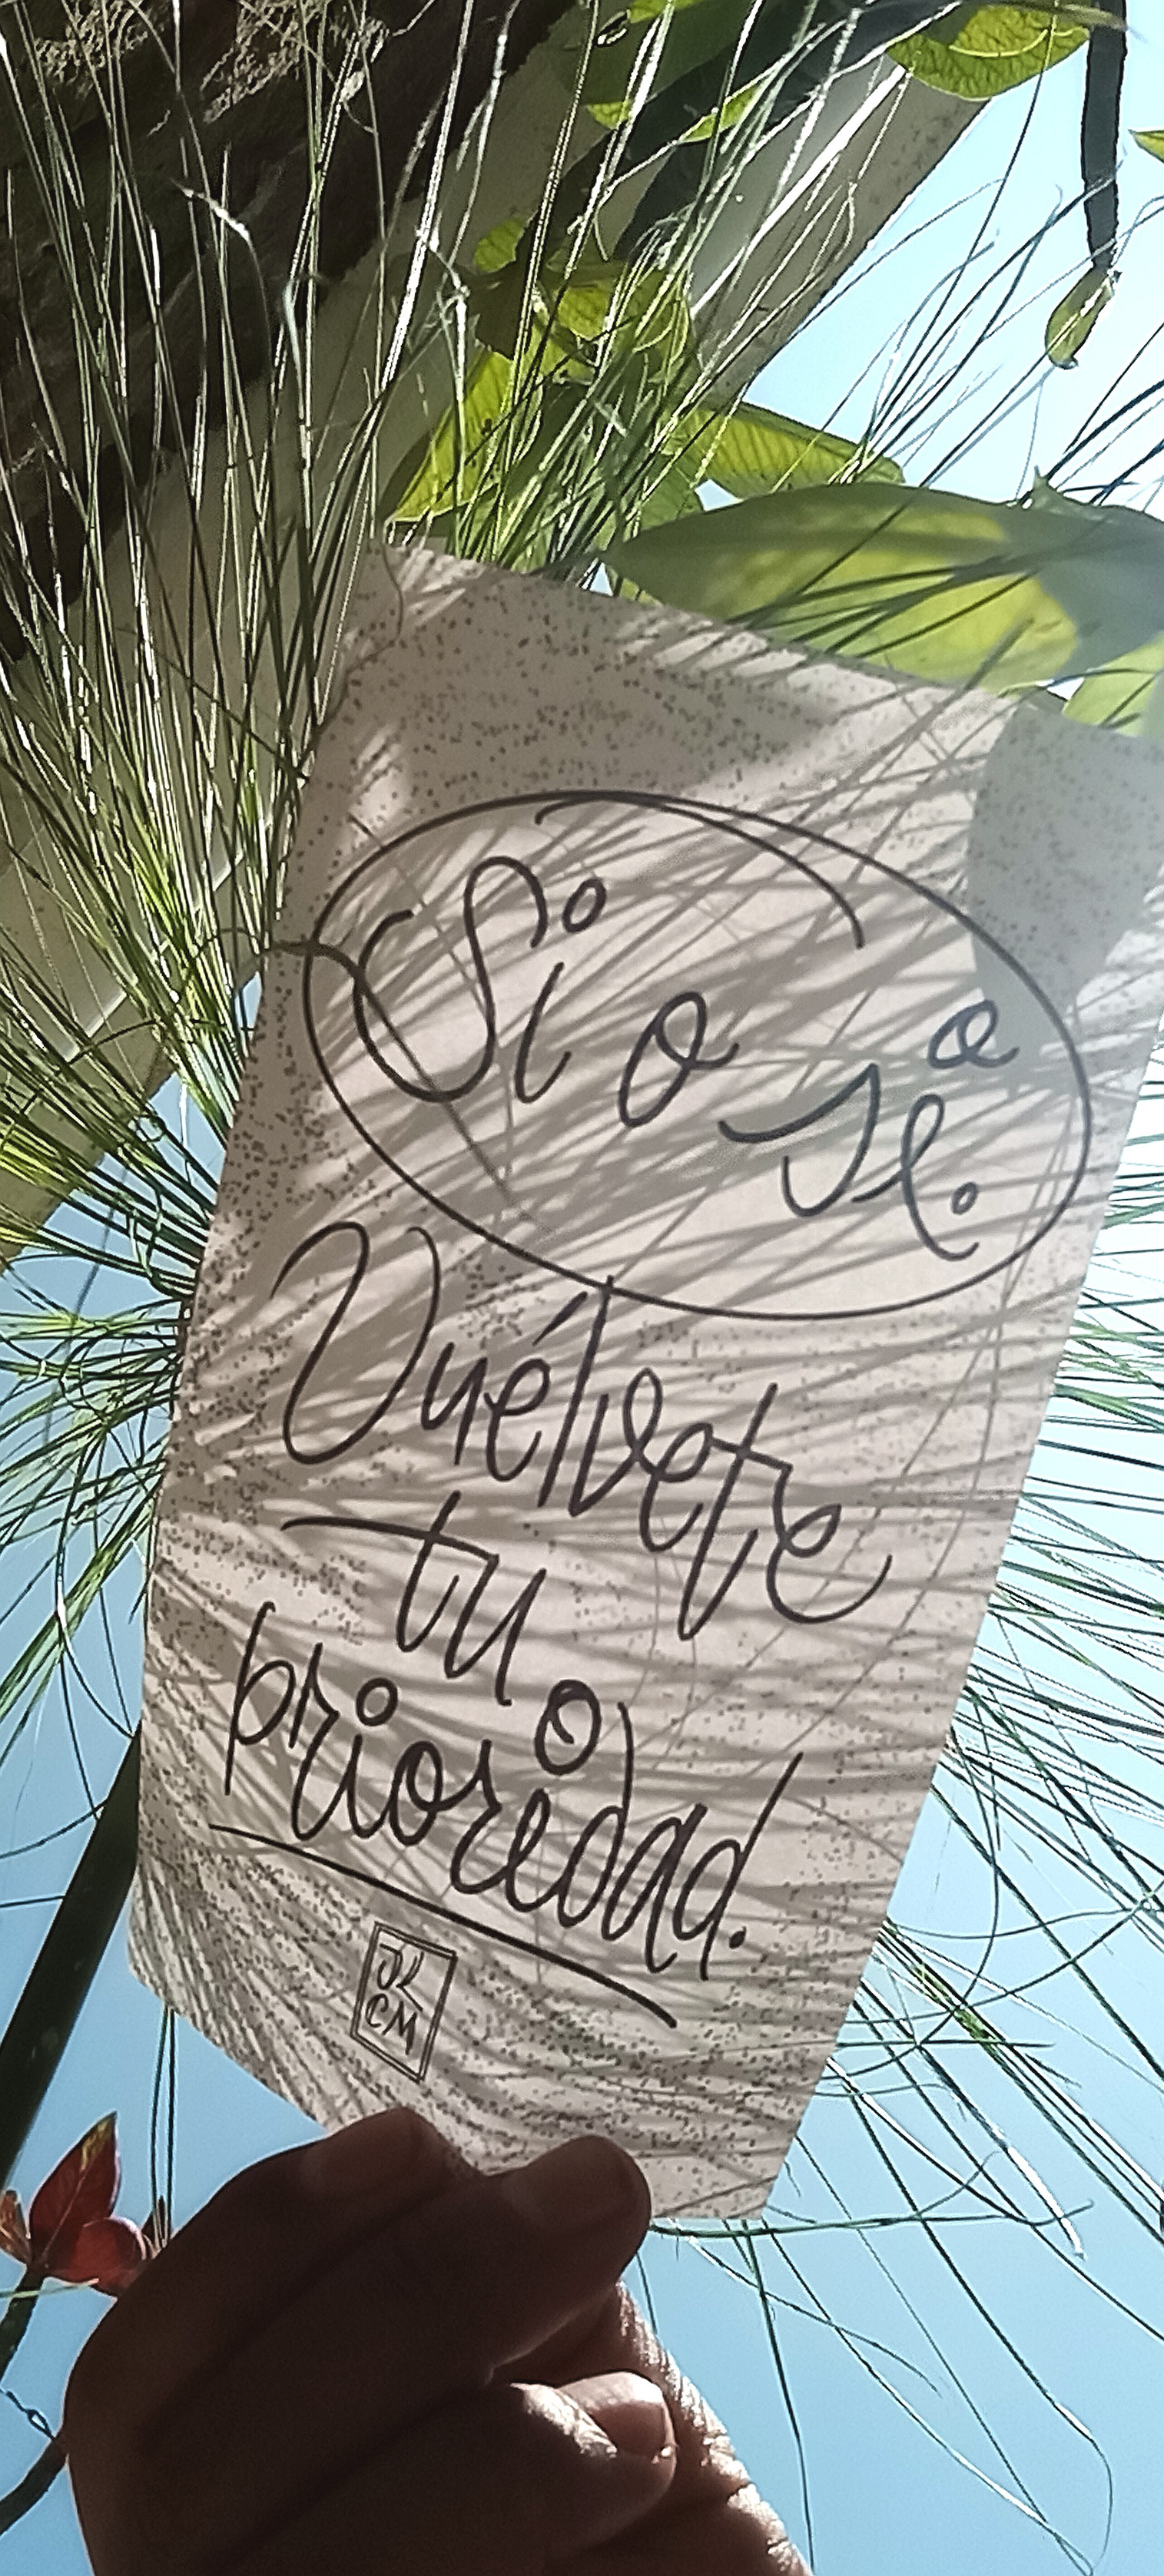 Si o si.
Vuélvete
tu
prioridad.
JK
CM